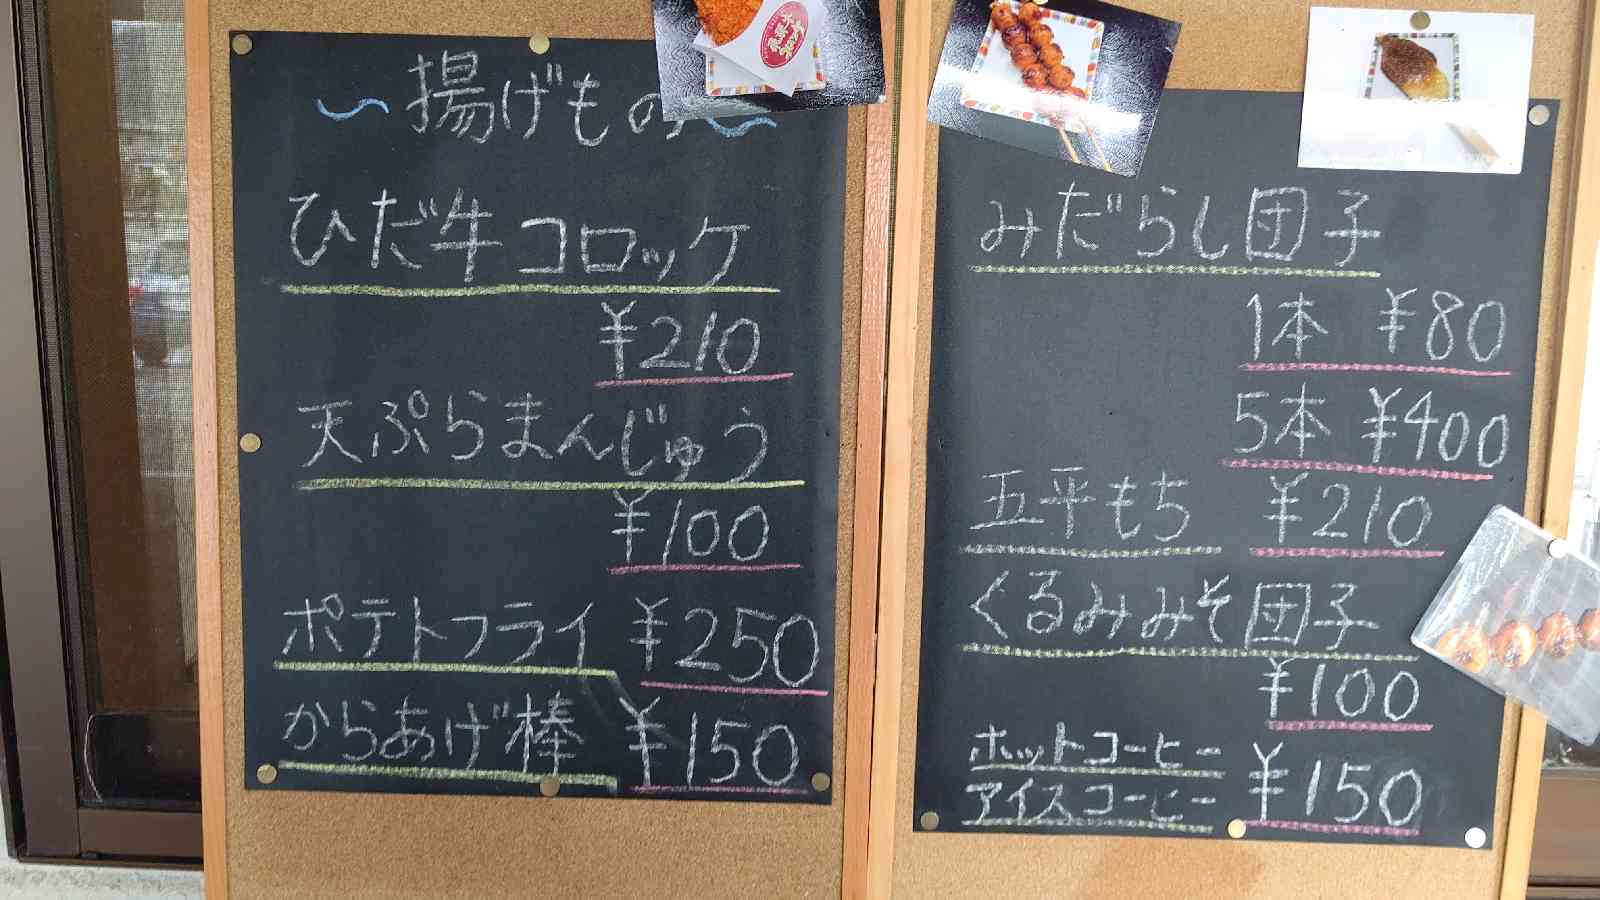 〜揚げもの〜
ひだ牛コロッケ
¥210
天ぷらまんじゅう
¥100
ポテトフライ ¥250
からあげ棒 ¥150
みだらし団子
1本 ¥80
5本 ¥400
五平もち ¥210
くるみみそ団子
¥100
ホットコーヒー
アイスコーヒー ¥150